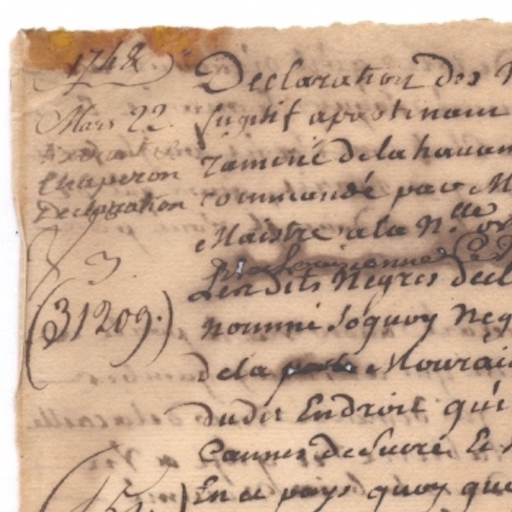 1748.
Mars 22.
Chaperon
Declaration
3.
(31209.)
Declaration des
fugitif
ramené de la havan
commandé par M
Maistre a la Nlle or
Les dits Negres decl
nommé Joquoy Neg
de la Mourai
du dit Endroit qui
Cannes de Sucre Et
En ce pays quoy que